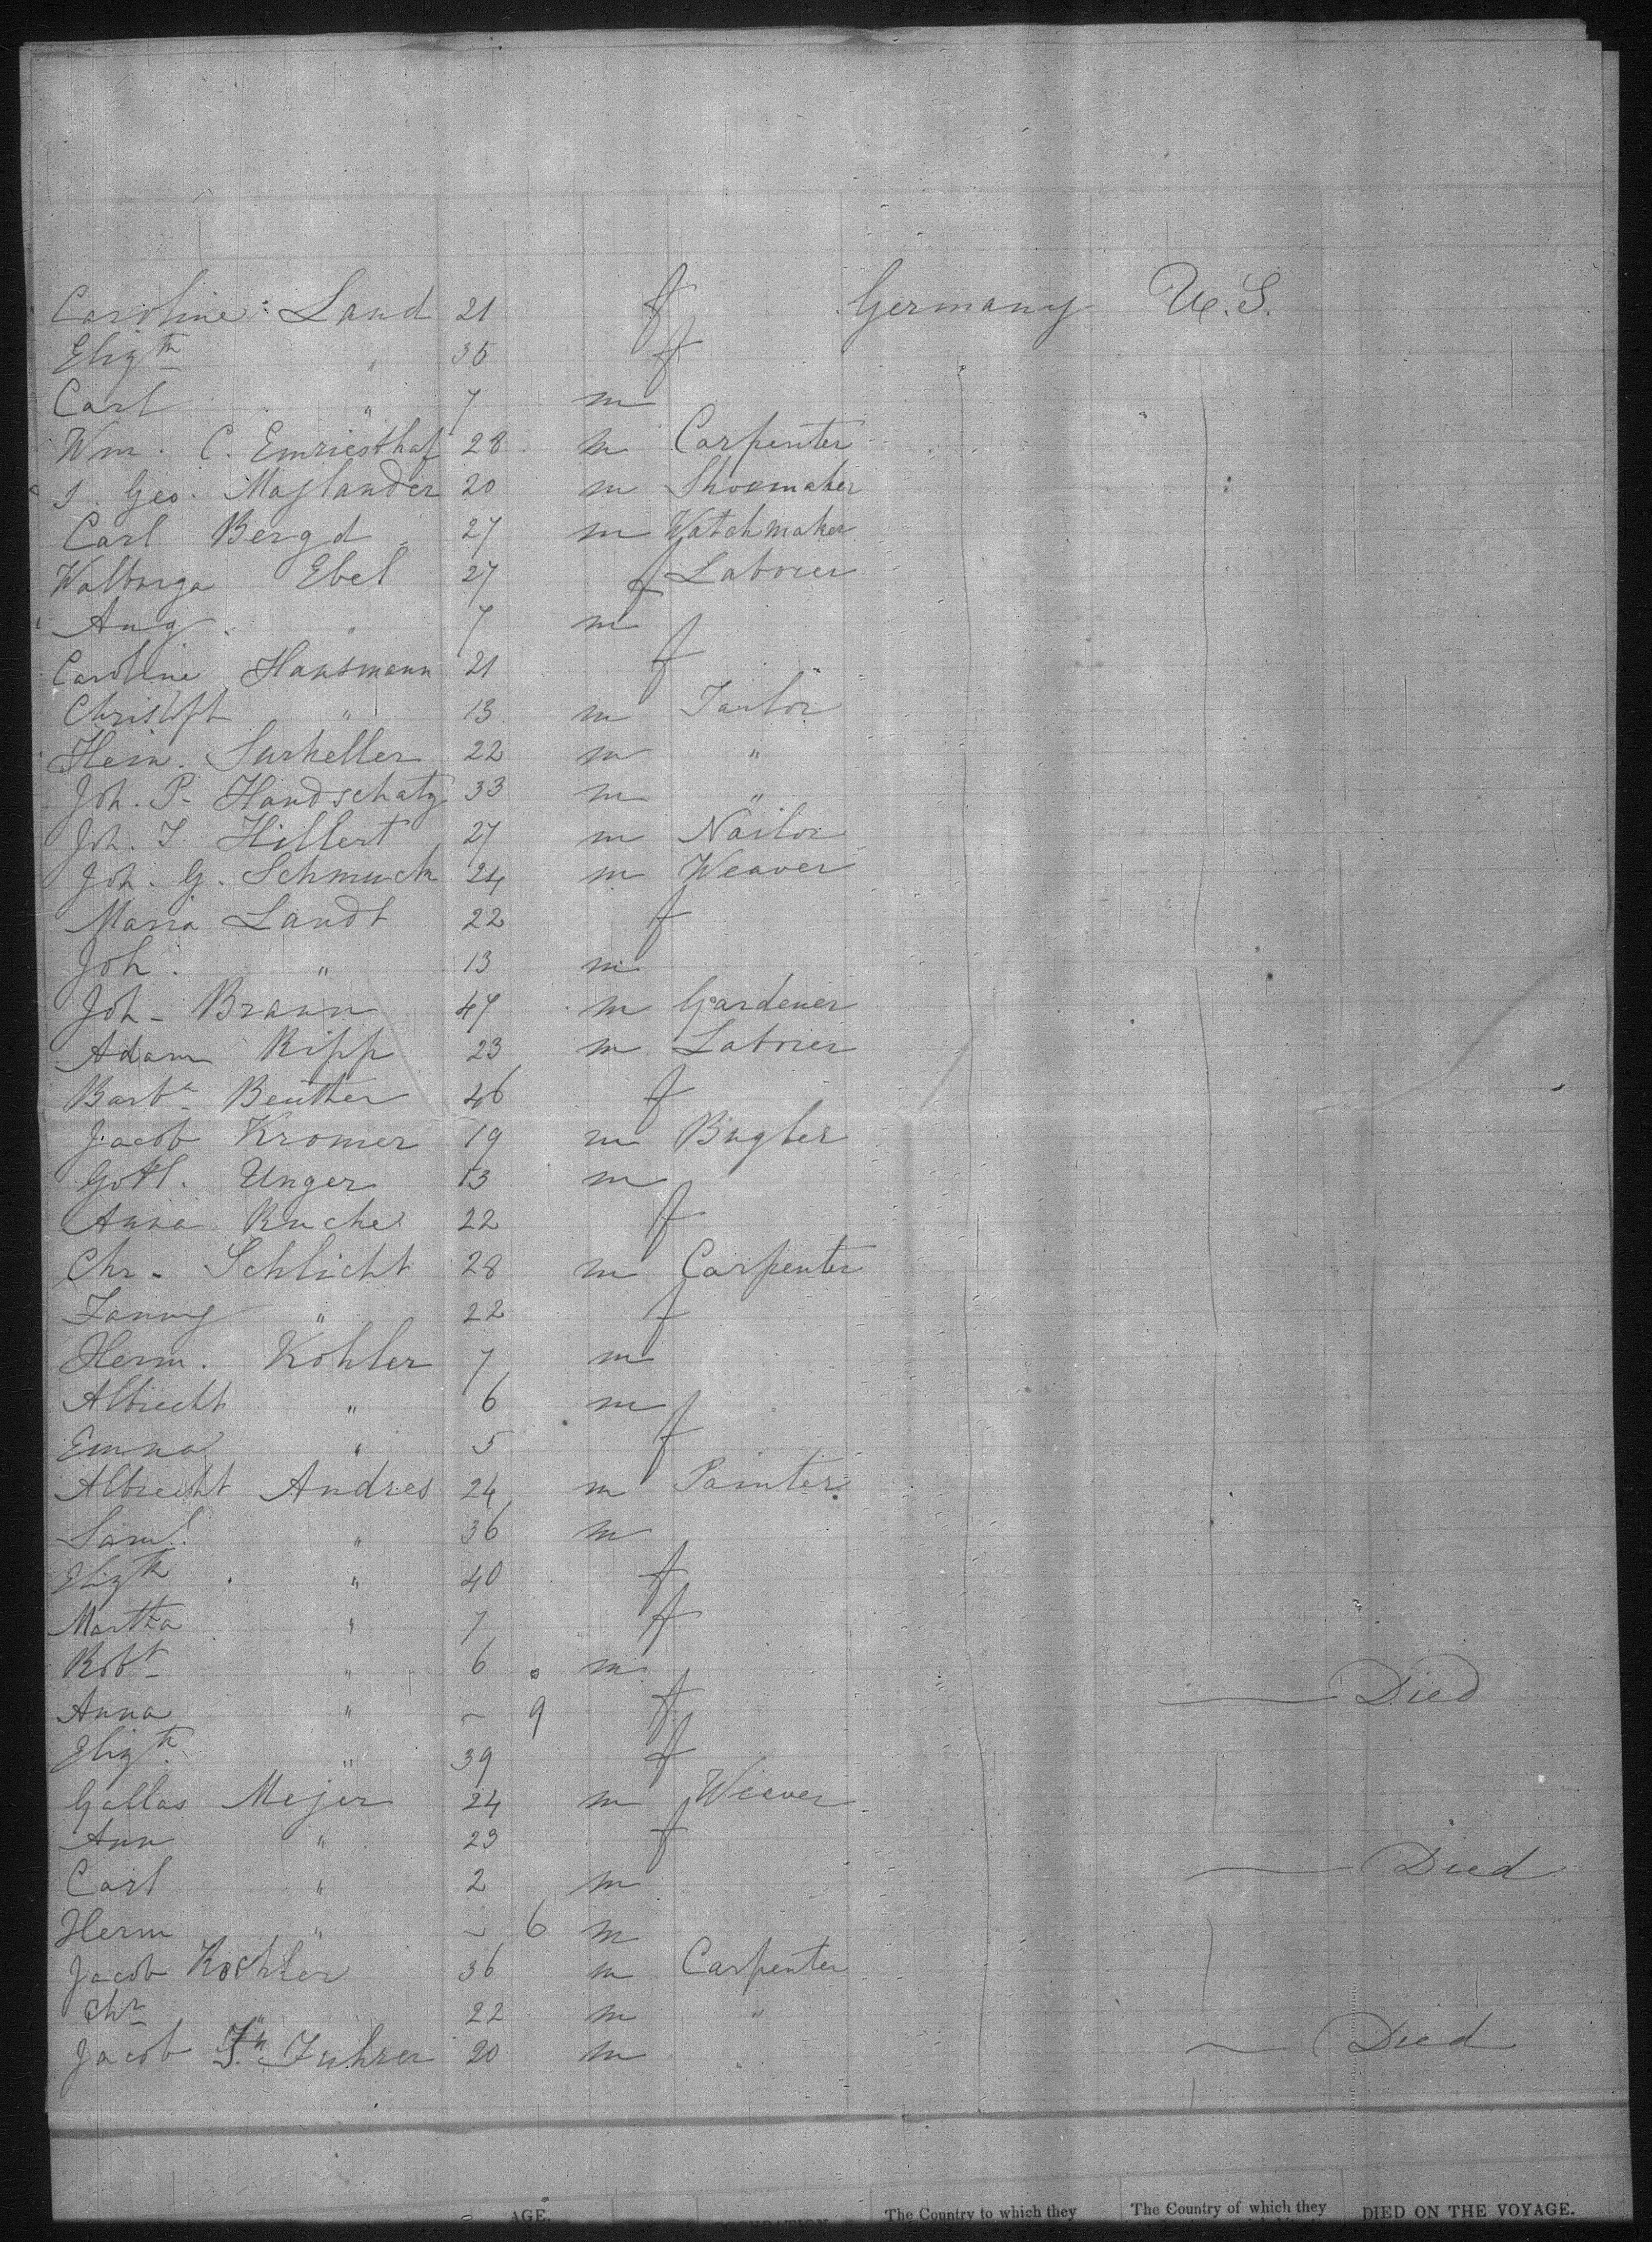 Caroline Land 21 f Germany U.S.
Elizth " 35 f
Carl " 7 m
Wm. C. Emriesthaf 28 m Carpenter
J. Geo. Maglander 20 m Shoemaker
Carl Bergd 27 m Watchmaker
Walburga Ebel 27 f Laborer
Aug. " 7 m
Caroline Hausmann 21 f
Christoph " 13 m Tailor
Hein. Surkeller 22 m "
Joh. P. Handschatz 33 m "
Joh. J. Hillert 27 m Nailor
Joh. G. Schmuck 24 m Weaver
Maria Landt 22 f
Joh. " 13 m
Joh - Braun 47 m Gardener
Adam Ripp 23 m Laborer
Barba Beuther 46 f
Jacob Kromer 19 m Bugler
Gottl. Unger 13 m
Anna Ruche 22 f
Chr - Schlicht 28 m Carpenter
Fanny " 22 f
Herm. Kohler 7 m
Albrecht " 6 m
Emma " 5 f
Albrecht Andres 24 m Painter
Saml. " 36 m
Elizth " 40 f
Martha " 7 f
Robt " 6 m
Anna " – 9 f — Died
Elizth " 39 f
Gallas Mejer 24 m Weaver
Ann " 23 f
Carl " 2 m — Died
Herm " – 6 m
Jacob Kochler 36 m Carpenter
Chr " 22 m "
Jacob Fuhrer 20 m " — Died
AGE. The Country to which they The Country of which they DIED ON THE VOYAGE.